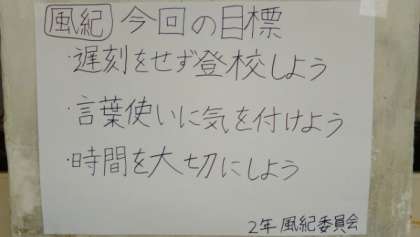 風紀 今回の目標
・遅刻をせず登校しよう
・言葉使いに気を付けよう
・時間を大切にしよう
2年 風紀委員会